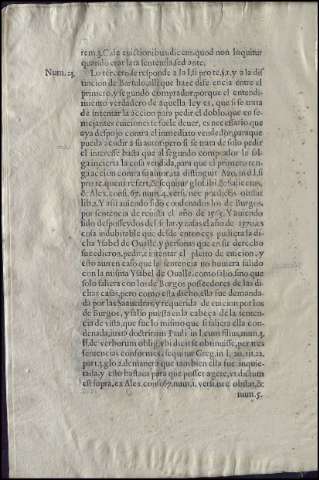 rem 3. C. de euictionibus dicens. quod non loquitur
quando erat lata sententia sed ante.
Num. 25 Lo tercero se responde a la l. si pro re, §. 1. y a la dis
tincion de Bartolo, alli que haze diferencia entre el
primero, y segundo comprador, porque el entendi-
miento verdadero de aquella ley es, que si se trata
de intentar la accion para pedir el doblo, que en se-
mejantes euictiones se suele deuer, es necessario que
aya despojo contra el inmediato vendedor, para que
pueda acudir a su autor, pero si se trata de solo pedir
el interesse basta que al segundo comprador le sal-
ga incierta la cosa vendida, para que el primero ten-
ga accion contra su autor
pro re, quem refert, & sequitur glos. ibi, & Salicetus,
& Alex. cons. 67. num. 4. vers. nec prædictis obstat
lib. 2. Y assi auiendo sido condenados los de Burgos,
por sentencia de reuista el año de
sido desposseydos del solar, y casas el año de 1570. es
cosa indubitable que desde entonces pudiera la di-
cha Ysabel de Oualle, y personas que en su derecho
sucedieron, pedir, e intentar el pleito de euicion, y
esto aun en caso que la sentencia no huuiera salido
con la misma Ysabel de Oualle, como salio, sino que
solo saliera con los de Burgos posseedores de las di-
chas casas, pero como esta dicho, ella fue demanda-
da por las Saauedras, y requerida de euicion por los
de Burgos, y salio puesta en la cabeça de la senten-
cia de vista, que fue lo mismo que si fuera ella con-
denada, iuxta doctrinam Pauli in l. eum filius, num. 4.
ff. de verborum oblig. vbi dicit se obtinuisse, per tres
sententias conformes, sequitur Greg. in l. 20. tit. 22.
part. 3. glo. 2. de manera que tambien ella fue inquie-
tada, y esto bastaua para que posset agere, vt dictum
est supra, ex Alex. cons. 67. num. 1. versi. nec obstat, &
num. 5.